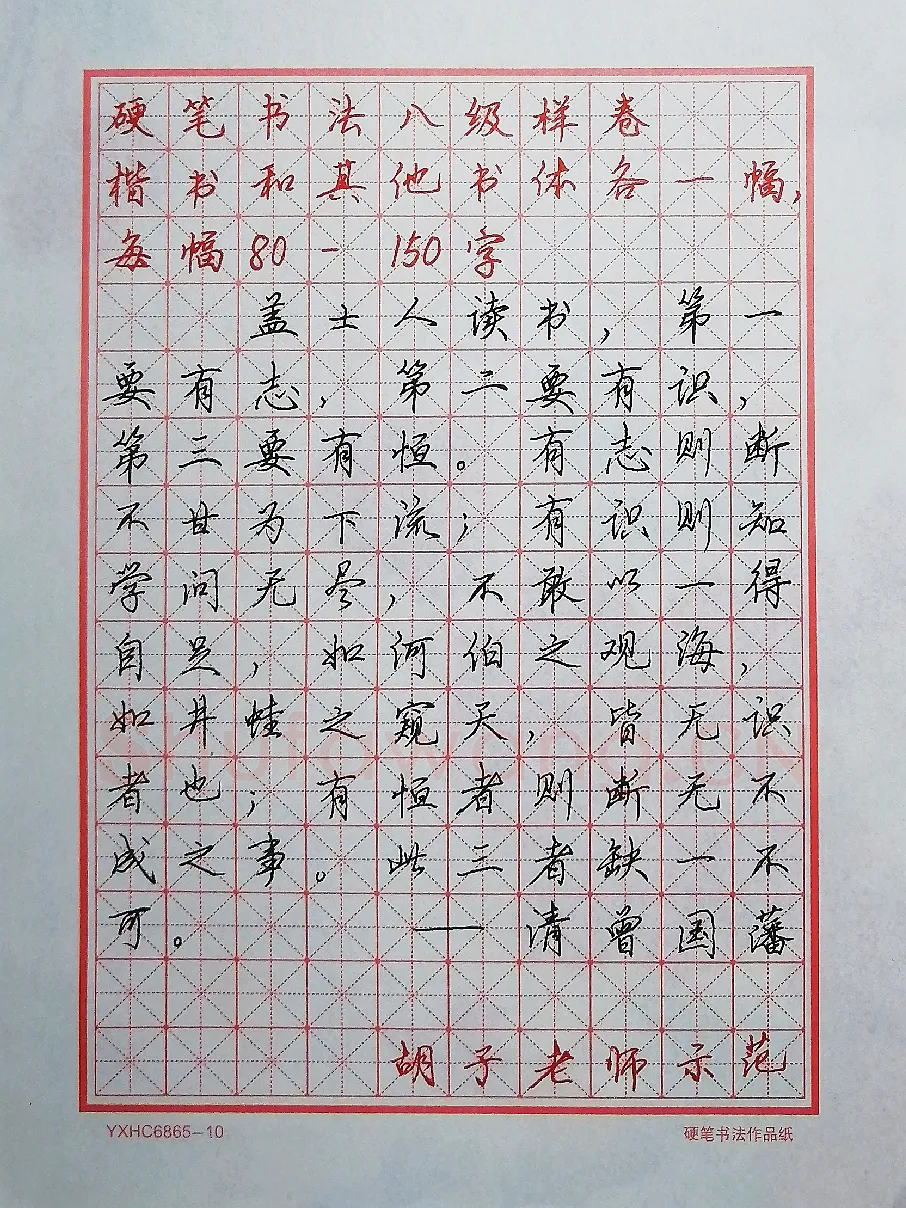 硬笔书法八级样卷
楷书和其他书体各一幅,
每幅80-150字
盖士人读书,第一
要有志,第二要有识,
第三要有恒。有志则断
不甘为下流;有识则知
学问无尽,不敢以一得
自足,如河伯之观海,
如井蛙之窥天,皆无识
者也;有恒者则断无不
成之事。此三者缺一不
可。——清曾国藩
胡子老师示范
YXHC6865-10 硬笔书法作品纸